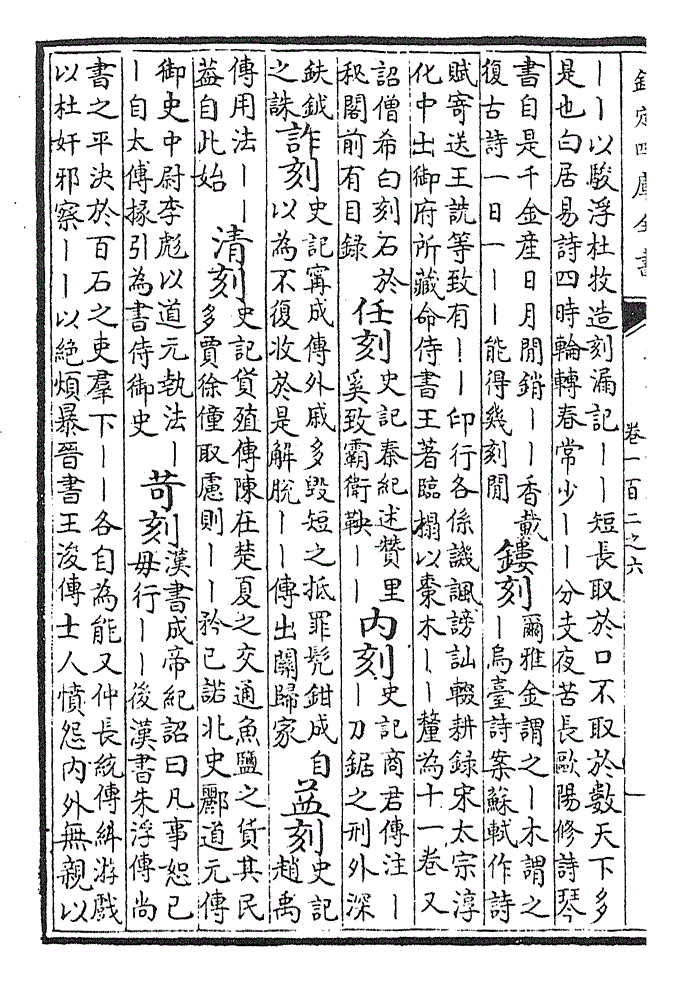 欽定四庫全書
卷一百二之六
一
丨丨以駿浮杜牧造刻漏記丨丨短長取於口不取於數天下多
是也白居易詩四時輪轉春常少丨丨分支夜苦長歐陽修詩琴
書自是千金産日月閒銷丨丨香載
復古詩一日一丨丨能得幾刻閒
鏤刻
爾雅金謂之丨木謂之
丨烏臺詩案蘇軾作詩
賦寄送王詵等致有丨丨印行各係譏諷謗訕輟耕録宋太宗淳
化中出御府所藏命侍書王著臨搨以棗木丨丨釐為十一卷又
詔僧希白刻石於
秘閣前有目録
任刻
史記秦紀述贊里
奚致霸衛鞅丨丨
内刻
史記商君傳注丨
丨刀鋸之刑外深
鈇鉞
之誅
詐刻
史記寗成傳外戚多毁短之抵罪髠鉗成自
以為不復收於是解脫丨丨傳出關歸家
益刻
史記
趙禹
傳用法丨丨
葢自此始
清刻
史記貨殖傳陳在楚夏之交通魚鹽之貨其民
多賈徐僮取慮則丨丨矜已諾北史酈道元傳
御史中尉李彪以道元執法丨
丨自太傅掾引為書侍御史
苛刻
漢書成帝紀詔曰凡事恕已
毋行丨丨後漢書朱浮傳尚
書之平決於百石之吏羣下丨丨各自為能又仲長統傳糾游戲
以杜奸邪察丨丨以絶煩暴晉書王浚傳士人憤怨内外無親以